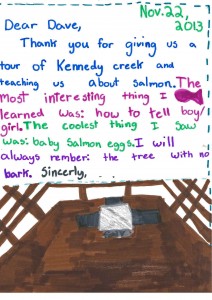 Nov. 22,
2013
Dear Dave,
Thank you for giving us a
tour of Kennedy creek and
teaching us about salmon. The
most interesting thing I
learned was: how to tell boy/
girl. The coolest thing I saw
was: baby salmon eggs. I will
always rember: the tree with no
bark. Sincerly,